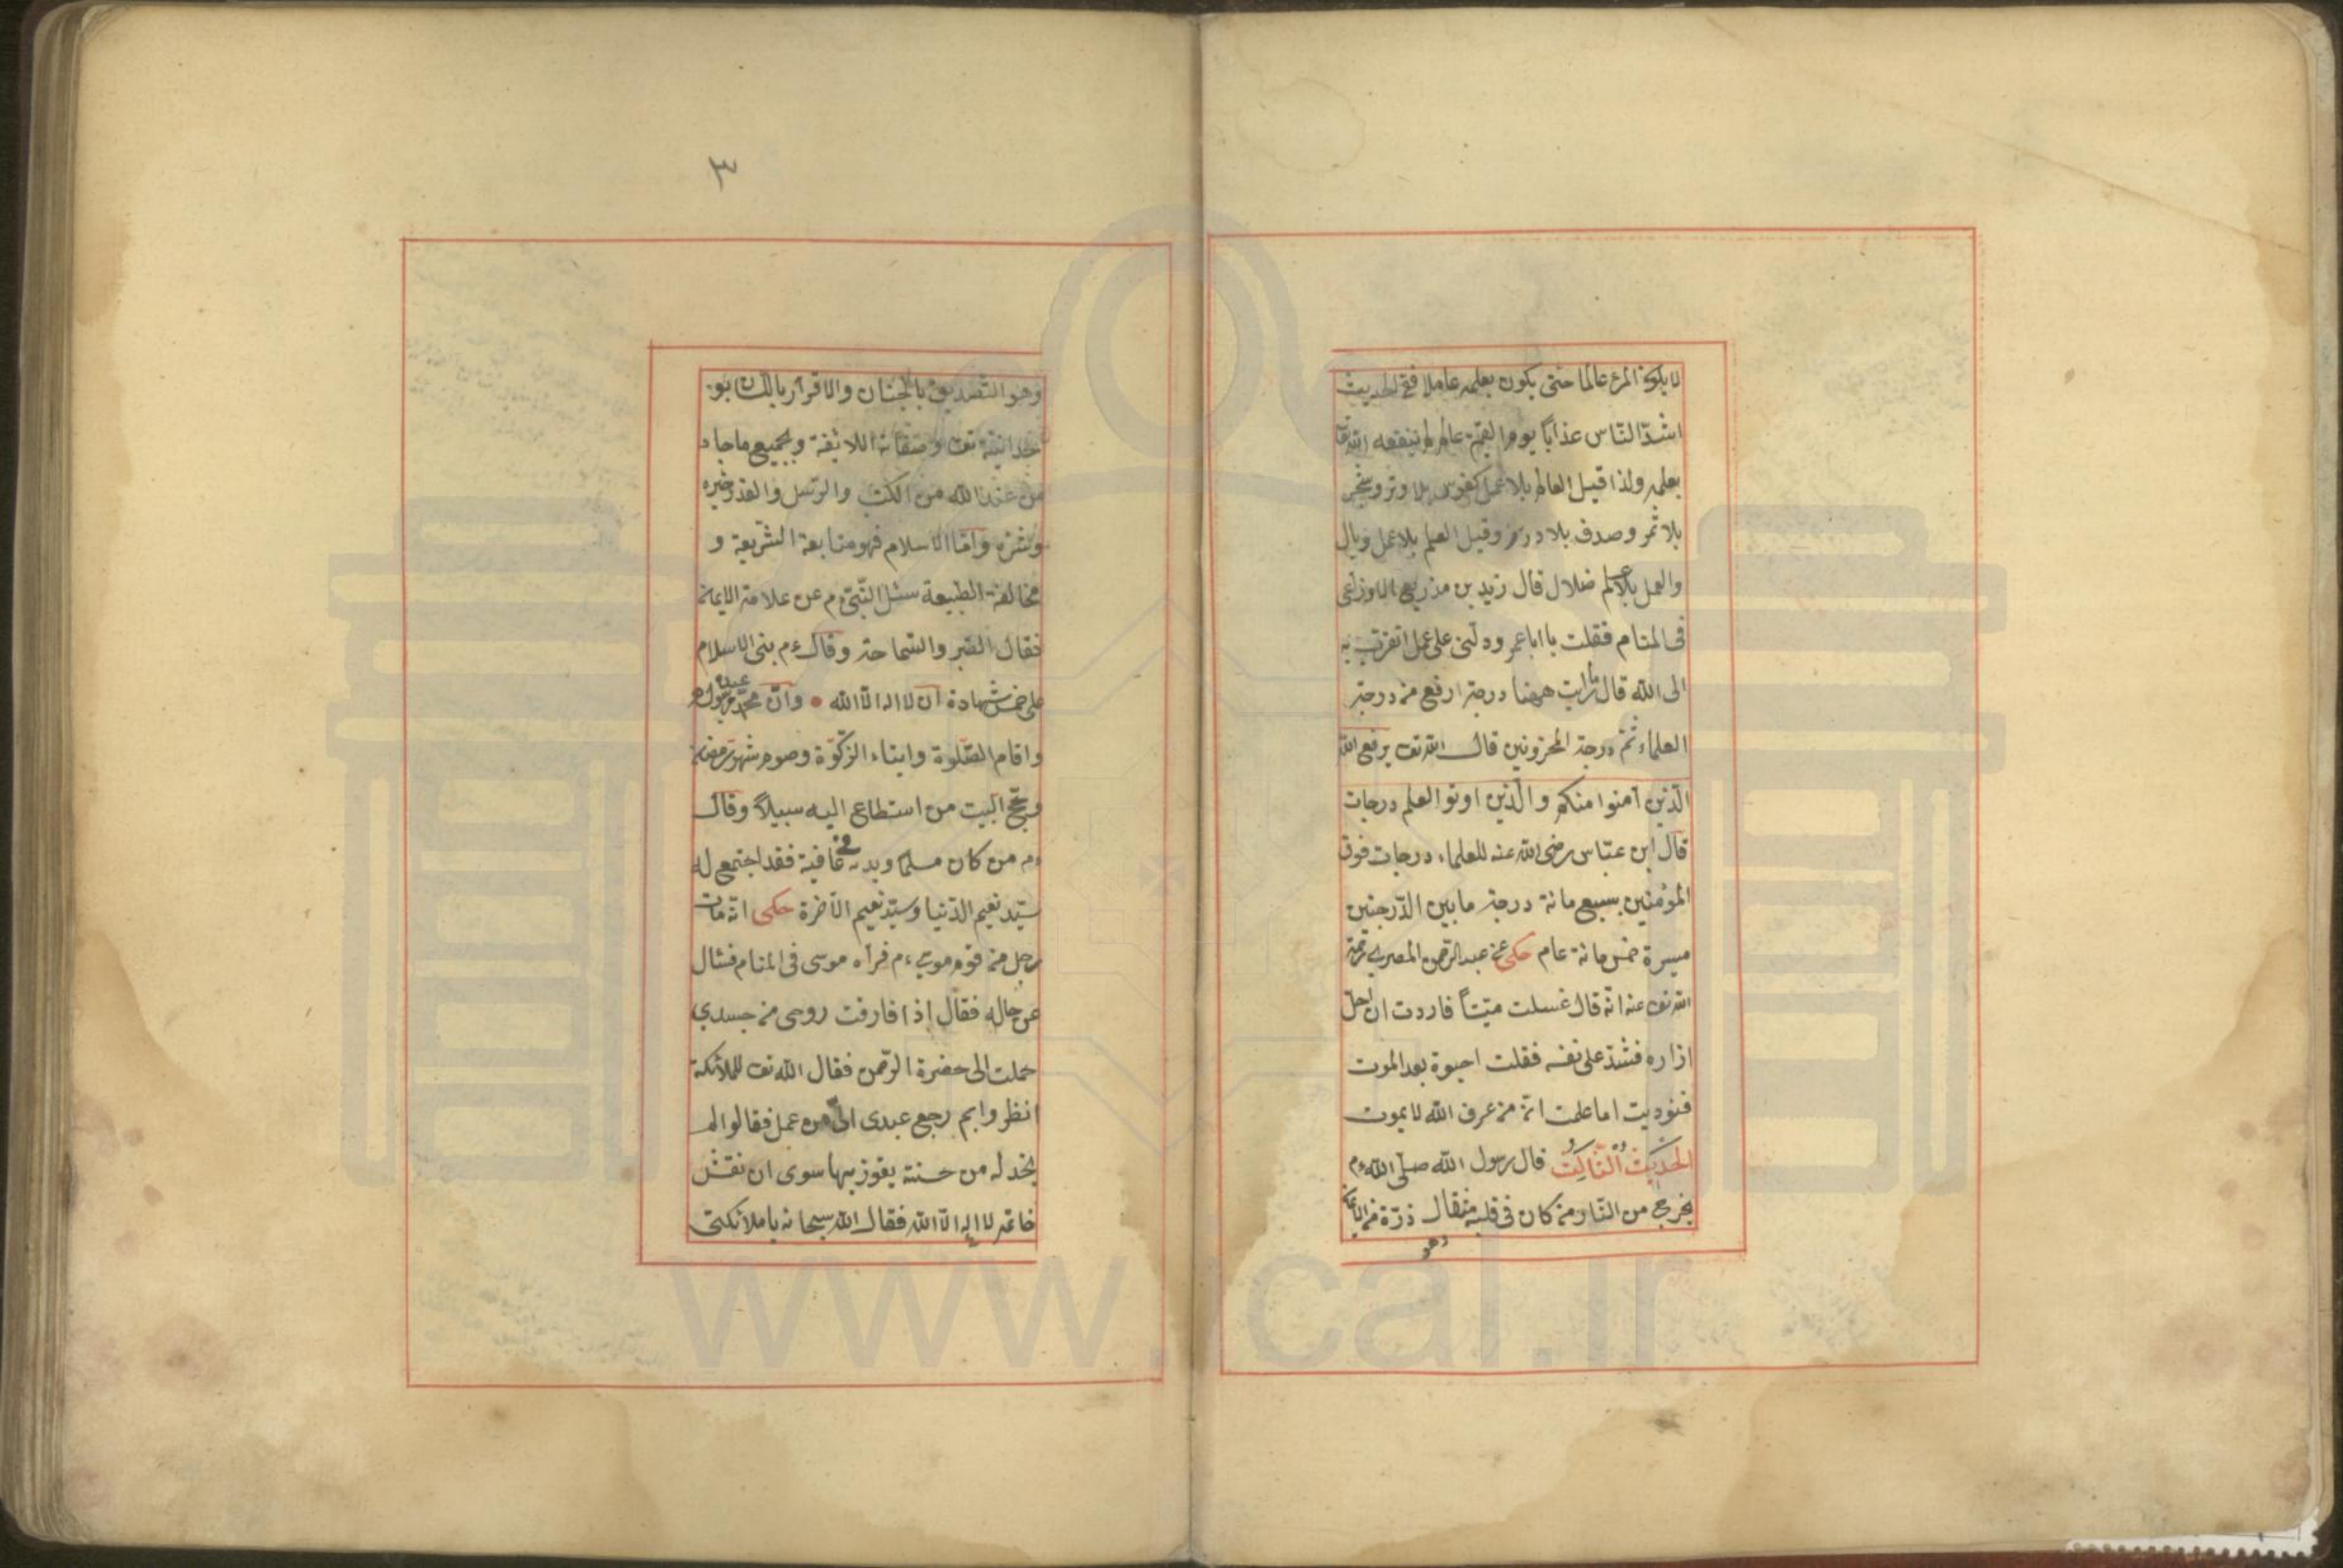 لا يكون المرء عالما حتى يكون بعلمه عاملا ففى الحديث
اشدّ النّاس عذاباً يوم القيمة عالم لم ينفعه الله تعا
بعلمه ولذا قيل العالم بلا عمل كقوس بلا وتر وشجر
بلا ثمر وصدف بلا درر وقيل العلم بلا عمل وبال
والعمل بلا علم ضلال قال زيد بن مذريع الاوزاعى
فى المنام فقلت يا ابا عمرو دلّنى على عمل اتقرّب به
الى الله قال ما رايت ههنا درجة ارفع من درجة
العلماء ثمّ درجة المحزونين قال الله تعـ يرفع الله
الّذين آمنوا منكم والّذين اوتوا العلم درجات
قال ابن عبّاس رضى الله عنه للعلماء درجات فوق
المؤمنين بسبع مائة درجة ما بين الدّرجتين
ميسرة خمس مائة عام حكى عن عبد الرّحمن المصرى رحمة
الله تعـ عنه انّه قال غسلت ميّتاً فاردت ان احلّ
ازاره فشدّ على نفسه فقلت احيوة بعد الموت
فنوديت اما علمت انّ من عرف الله لا يموت
الحَديثُ الثّالِثُ قال رسول الله صلّى الله ءم
يخرج من النّار من كان فى قلبه مثقال ذرّة من الايمان
وهو
٣
وهو التّصديق بالجنان والاقرار باللّسان بو
حدانيّته تعـ وصفاته اللائقة وبجميع ما جاء
من عند الله من الكتب والرّسل والقدر خيره
وشرّه وامّا الاسلام فهو متابعة الشّريعة و
مخالفة الطبيعة سئل النّبىّ ءم عن علامة الايمان
فقال الصّبر والسّماحة وقال ءم بنى الاسلام
على خمس شهادة ان لا اله الّا الله وانّ محمّدا عبده ورسوله
واقام الصّلوة وايتاء الزّكوة وصوم شهر رمضان
وحجّ البيت من استطاع اليه سبيلاً وقال
ءم من كان مسلما وبدنه فى عافية فقد اجتمع له
سيّد نعيم الدّنيا وسيّد نعيم الآخرة حكى انّه مات
رجل من قوم موسى ءم فرآه موسى فى المنام فسأل
عن حاله فقال إذا فارقت روحى من جسدي
حملت الى حضرة الرّحمن فقال الله تعـ للملائكة
انظروا بم رجع عبدى الىّ من عمل فقالوا لم
يجد له من حسنة يفوز بها سوى ان نقش
خاتمه لا اله الّا الله فقال الله سبحانه يا ملائكتى
www.ical.ir